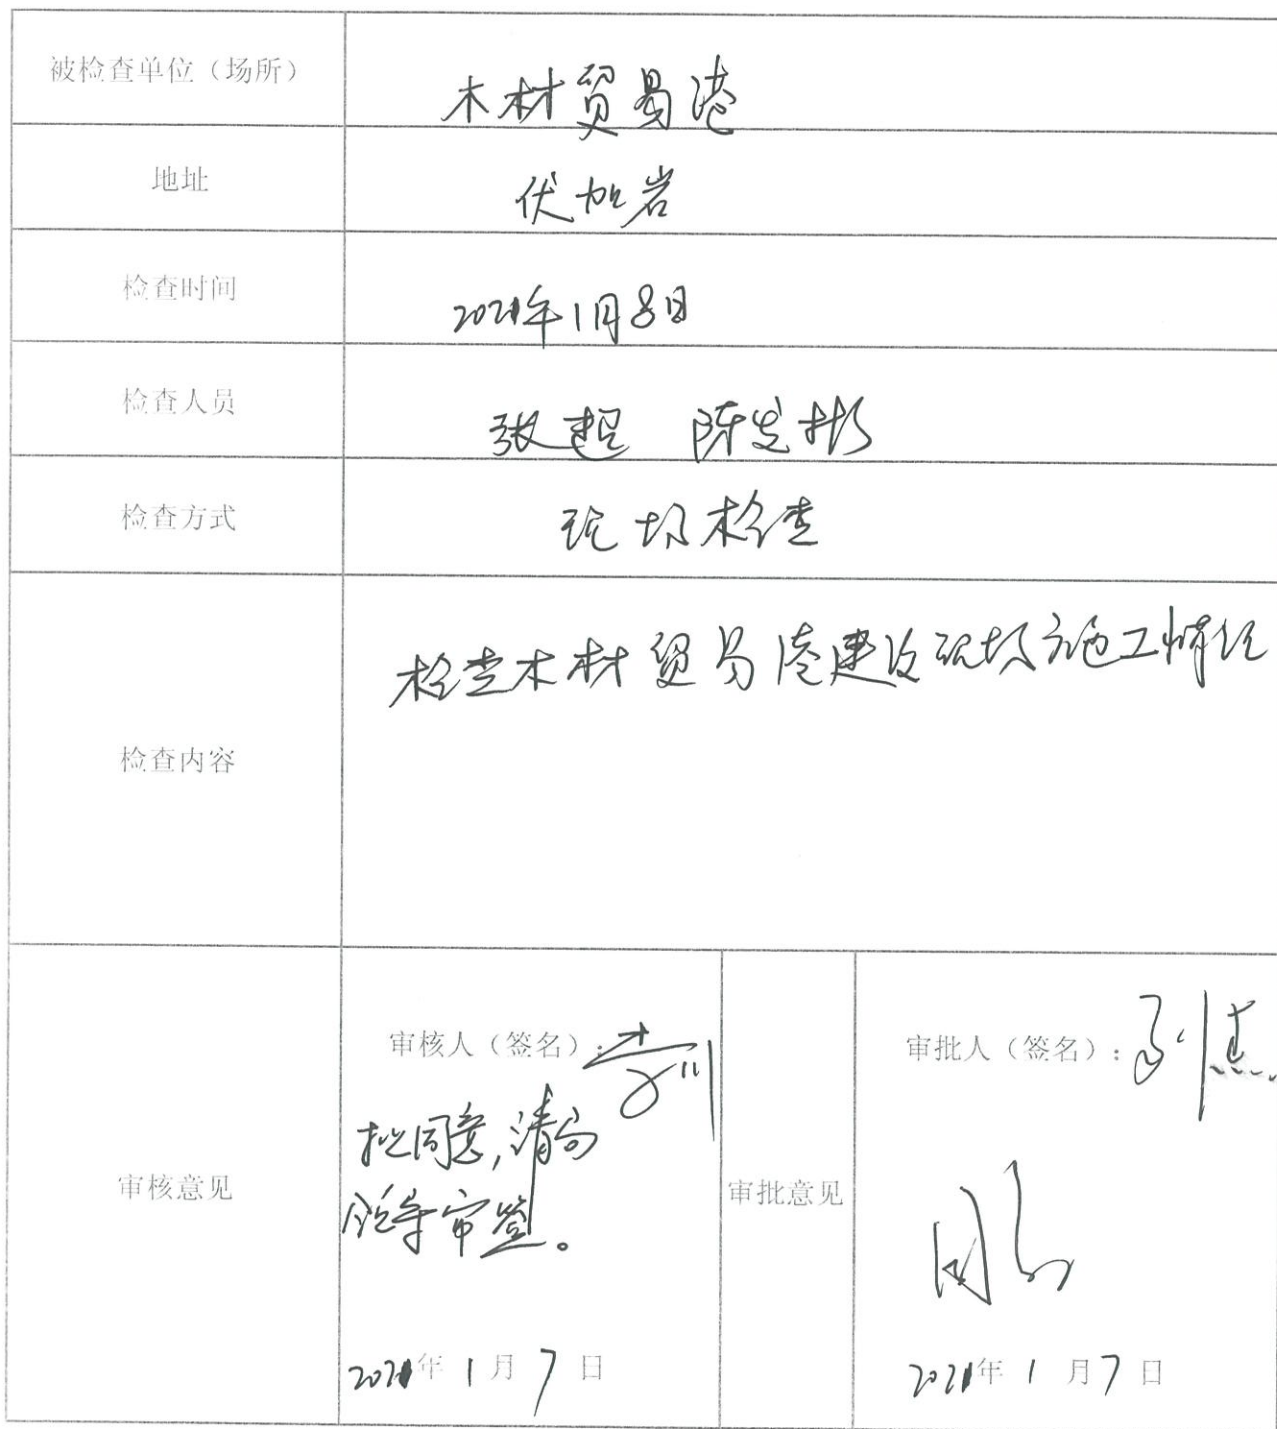 被检查单位（场所）
木材贸易港
地址
伏加岩
检查时间
2021年1月8日
检查人员
张超 陈发彬
检查方式
现场检查
检查内容
检查木材贸易港建设现场施工情况
审核意见
审核人（签名）：
拟同意，请局
领导审签。
2021年1月7日
审批意见
审批人（签名）：
同意
2021年1月7日